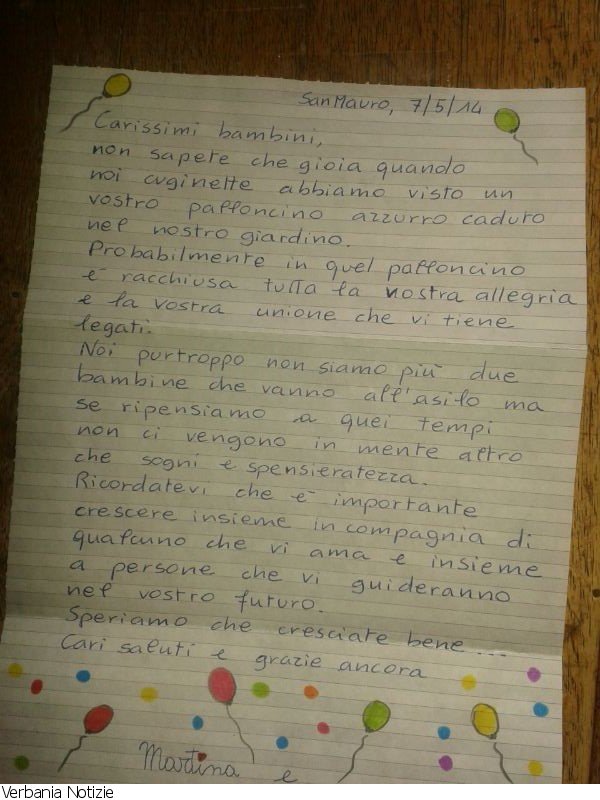 San Mauro, 7/5/14
Carissimi bambini,
non sapete che gioia quando
noi cuginette abbiamo visto un
vostro palloncino azzurro caduto
nel nostro giardino.
Probabilmente in quel palloncino
è racchiusa tutta la vostra allegria
e la vostra unione che vi tiene
legati.
Noi purtroppo non siamo più due
bambine che vanno all'asilo ma
se ripensiamo a quei tempi
non ci vengono in mente altro
che sogni e spensieratezza.
Ricordatevi che è importante
crescere insieme in compagnia di
qualcuno che vi ama e insieme
a persone che vi guideranno
nel vostro futuro.
Speriamo che cresciate bene...
Cari saluti e grazie ancora
Martina e
Verbania Notizie